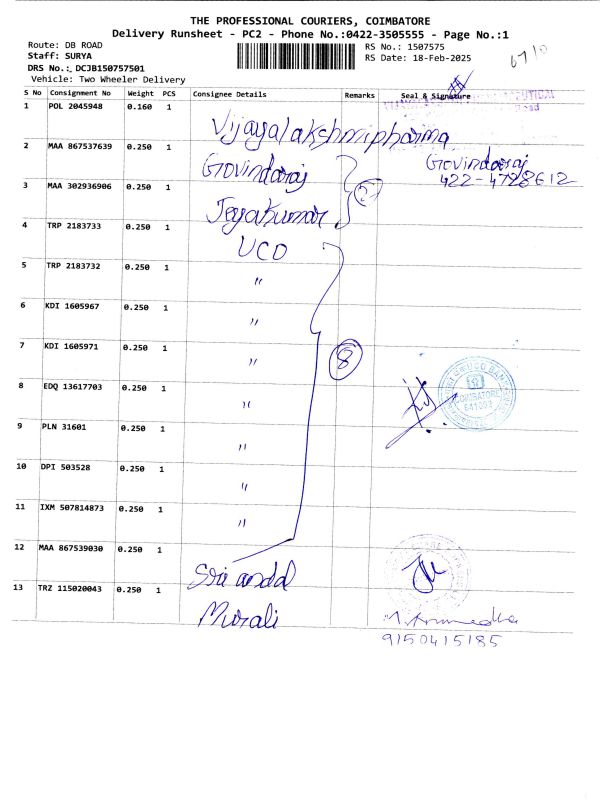 THE PROFESSIONAL COURIERS, COIMBATORE
Delivery Runsheet - PC2 - Phone No.:0422-3505555 - Page No.:1
Route: DB ROAD
Staff: SURYA
DRS No.: DCJB150757501
Vehicle: Two Wheeler Delivery
RS No.: 1507575
RS Date: 18-Feb-2025
S No Consignment No Weight PCS Consignee Details Remarks Seal & Signature
1 POL 2045948 0.160 1 Vijayalakshmi pharma
2 MAA 867537639 0.250 1 Govindaraj Govindaraj
422-4728612
3 MAA 302936906 0.250 1 Jeyakumar
4 TRP 2183733 0.250 1 UCO
5 TRP 2183732 0.250 1 "
6 KDI 1605967 0.250 1 "
7 KDI 1605971 0.250 1 " 8
8 EDQ 13617703 0.250 1 "
9 PLN 31601 0.250 1 "
10 DPI 503528 0.250 1 "
11 IXM 507814873 0.250 1 "
12 MAA 867539030 0.250 1 Sri andal
13 TRZ 115020043 0.250 1 Murali
9150415185